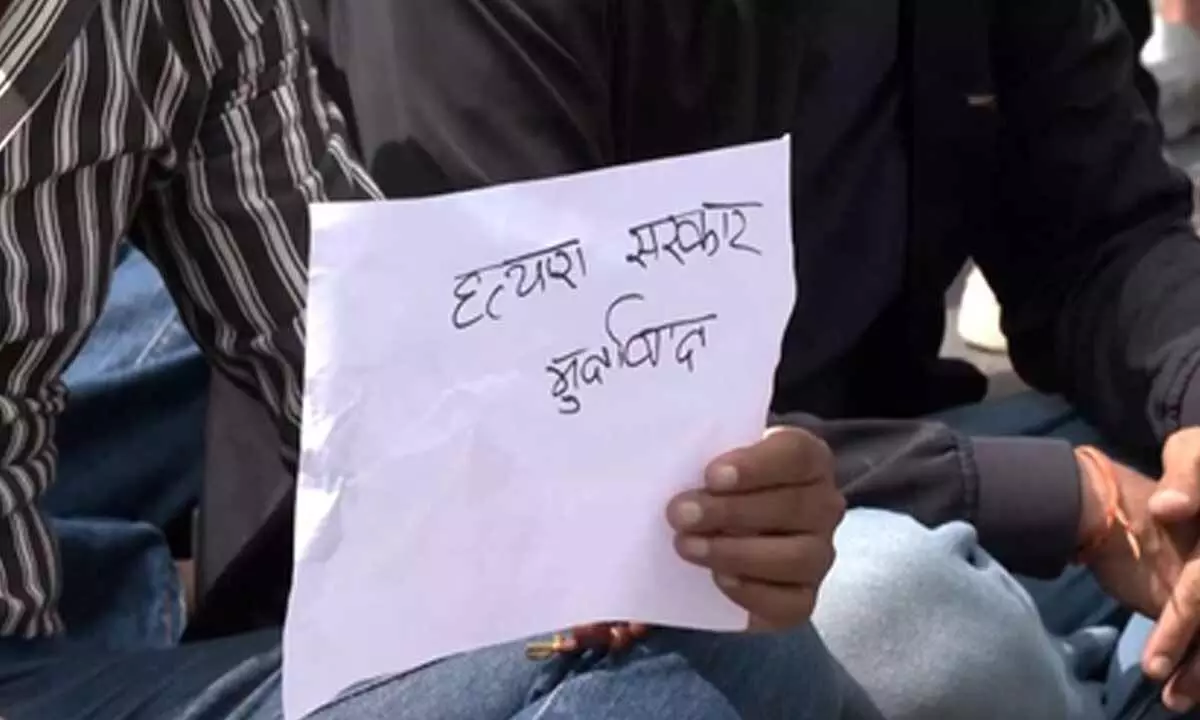 हत्यारा सरकार
मुर्दावाद